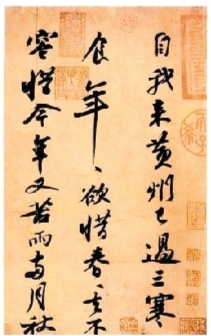 自我来黄州已過三寒
食年々欲惜春々去不
容惜今年又苦雨兩月秋